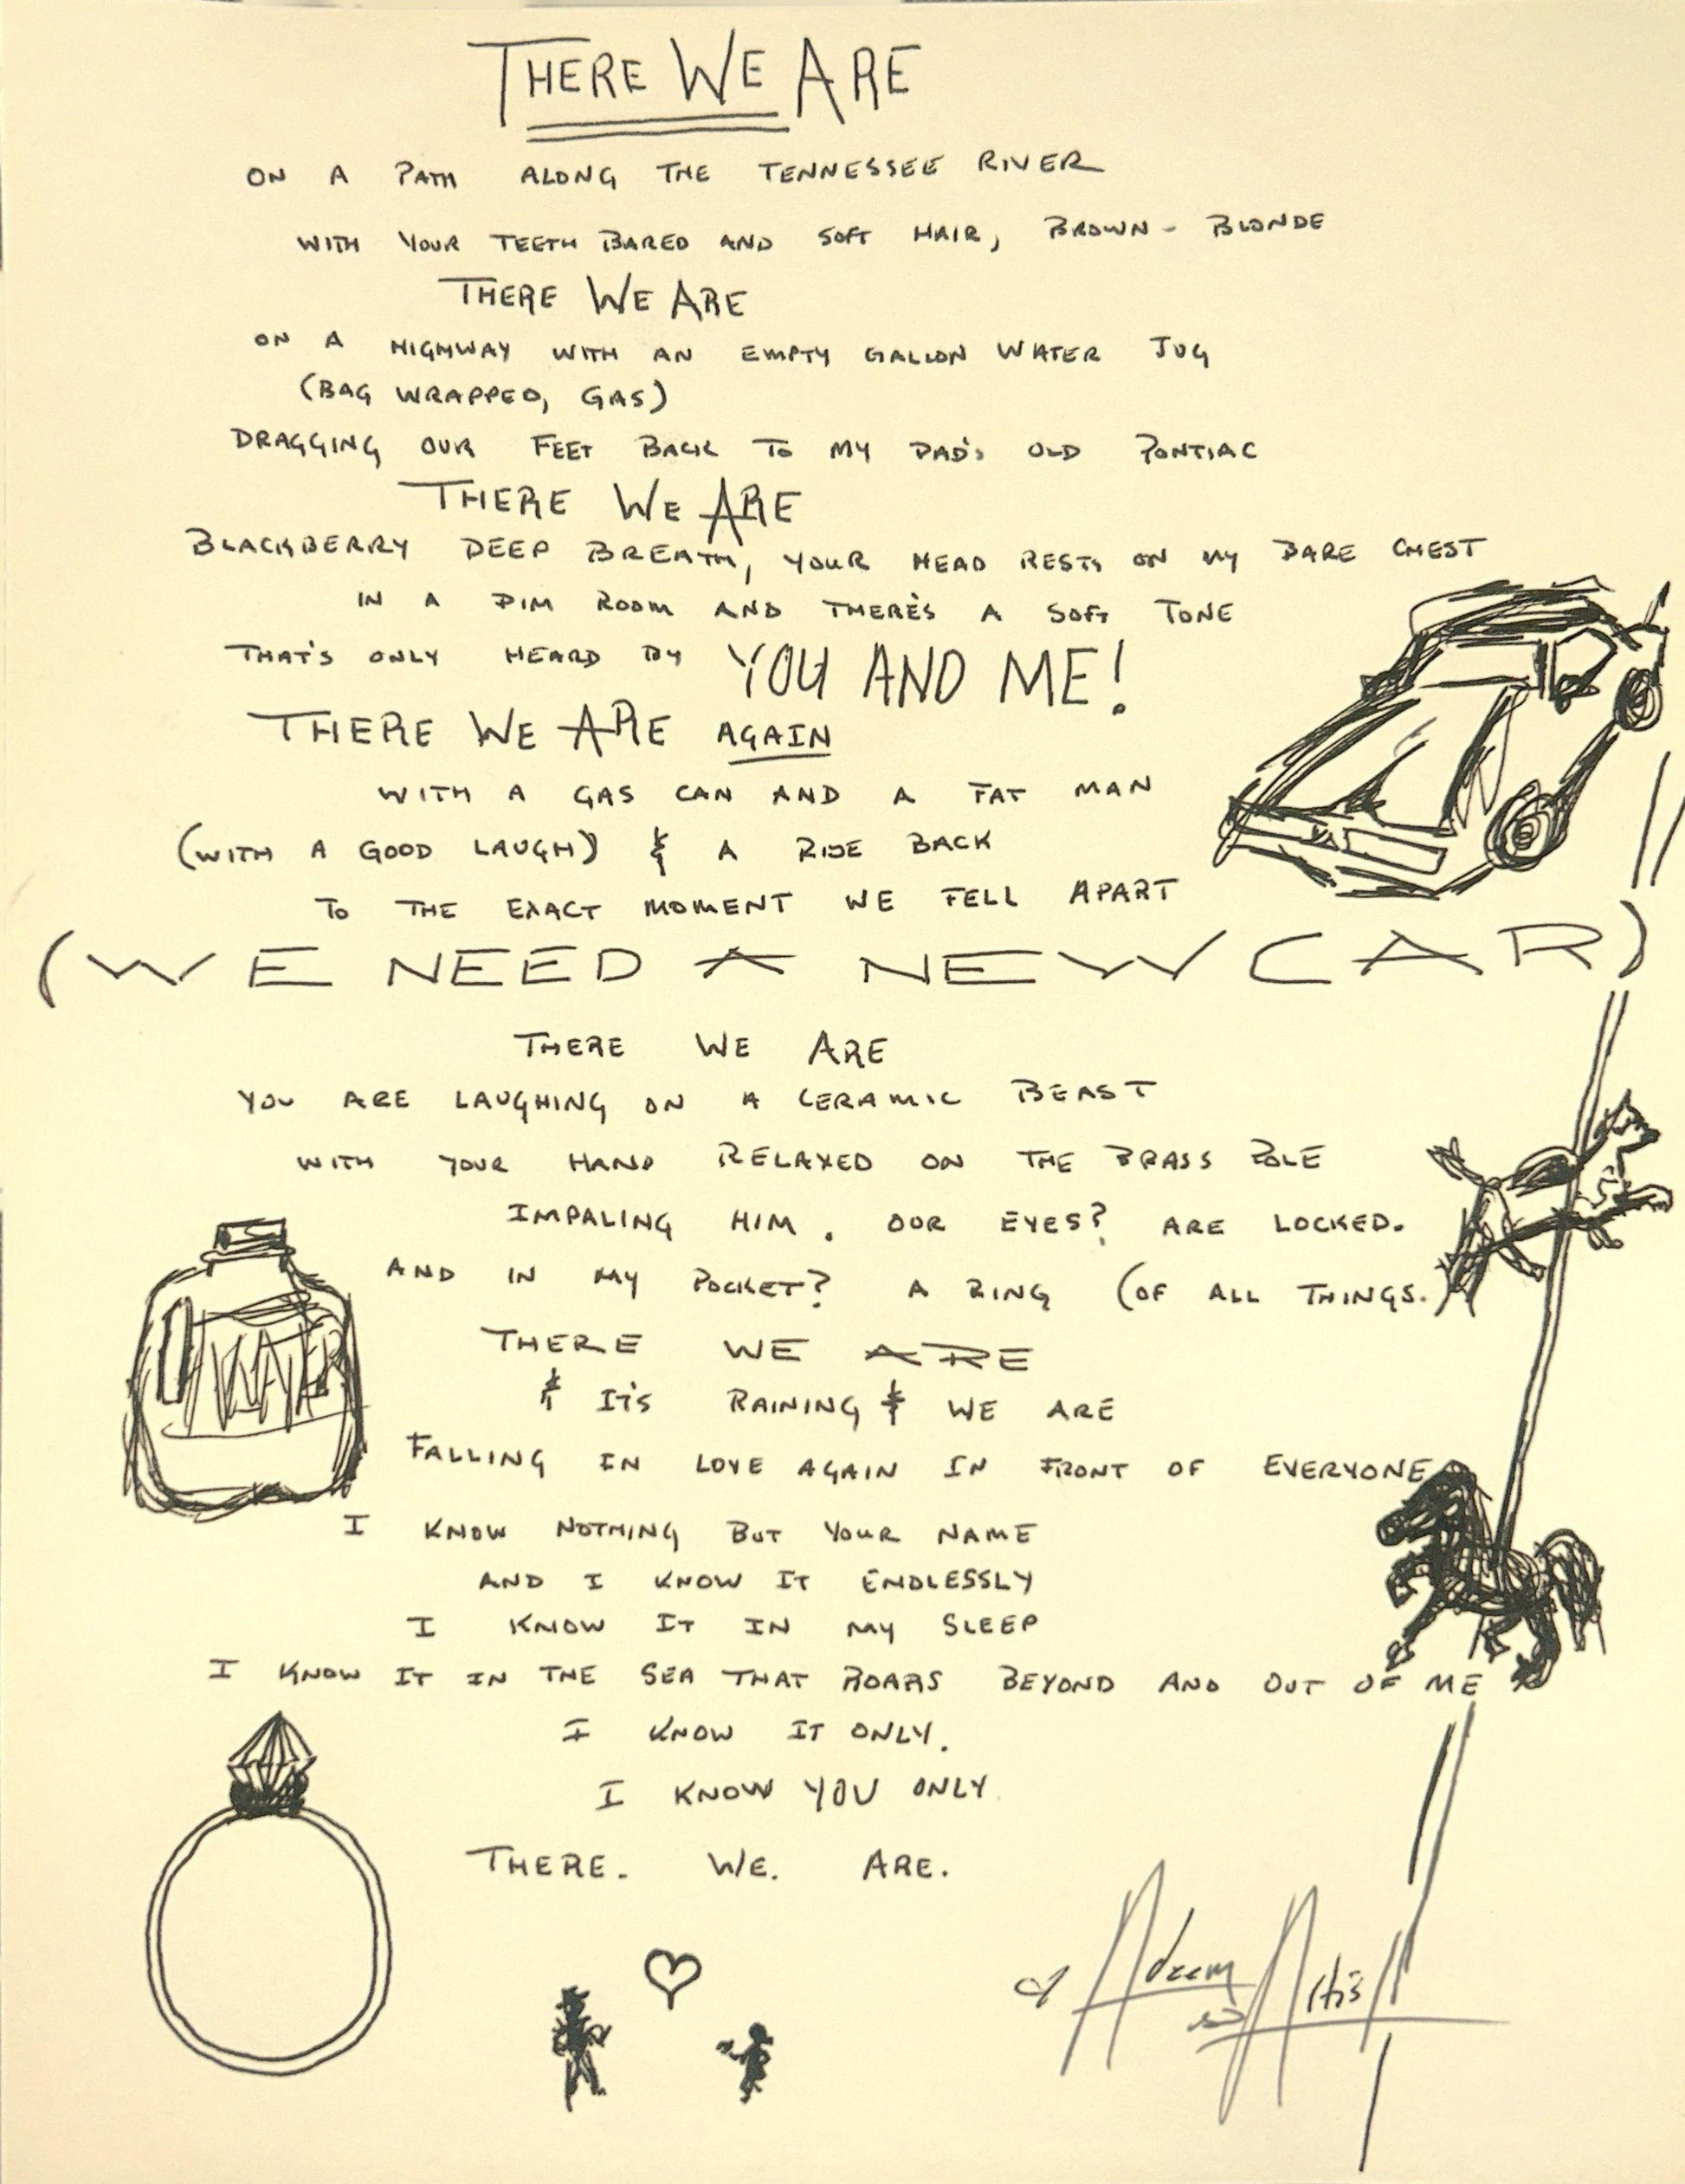 THERE WE ARE
ON A PATH ALONG THE TENNESSEE RIVER
WITH YOUR TEETH BARED AND SOFT HAIR, BROWN-BLONDE
THERE WE ARE
ON A HIGHWAY WITH AN EMPTY GALLON WATER JUG
(BAG WRAPPED, GAS)
DRAGGING OUR FEET BACK TO MY DAD'S OLD PONTIAC
THERE WE ARE
BLACKBERRY DEEP BREATH, YOUR HEAD RESTS ON MY BARE CHEST
IN A DIM ROOM AND THERE'S A SOFT TONE
THAT'S ONLY HEARD BY YOU AND ME!
THERE WE ARE AGAIN
WITH A GAS CAN AND A FAT MAN
(WITH A GOOD LAUGH) & A RIDE BACK
TO THE EXACT MOMENT WE FELL APART
(WE NEED A NEW CAR)
THERE WE ARE
YOU ARE LAUGHING ON A CERAMIC BEAST
WITH YOUR HAND RELAXED ON THE BRASS POLE
IMPALING HIM. OUR EYES? ARE LOCKED.
AND IN MY POCKET? A RING (OF ALL THINGS.)
WATER
THERE WE ARE
& IT'S RAINING & WE ARE
FALLING IN LOVE AGAIN IN FRONT OF EVERYONE
I KNOW NOTHING BUT YOUR NAME
AND I KNOW IT ENDLESSLY
I KNOW IT IN MY SLEEP
I KNOW IT IN THE SEA THAT ROARS BEYOND AND OUT OF ME
I KNOW IT ONLY.
I KNOW YOU ONLY
THERE. WE. ARE.
Adeem Artis